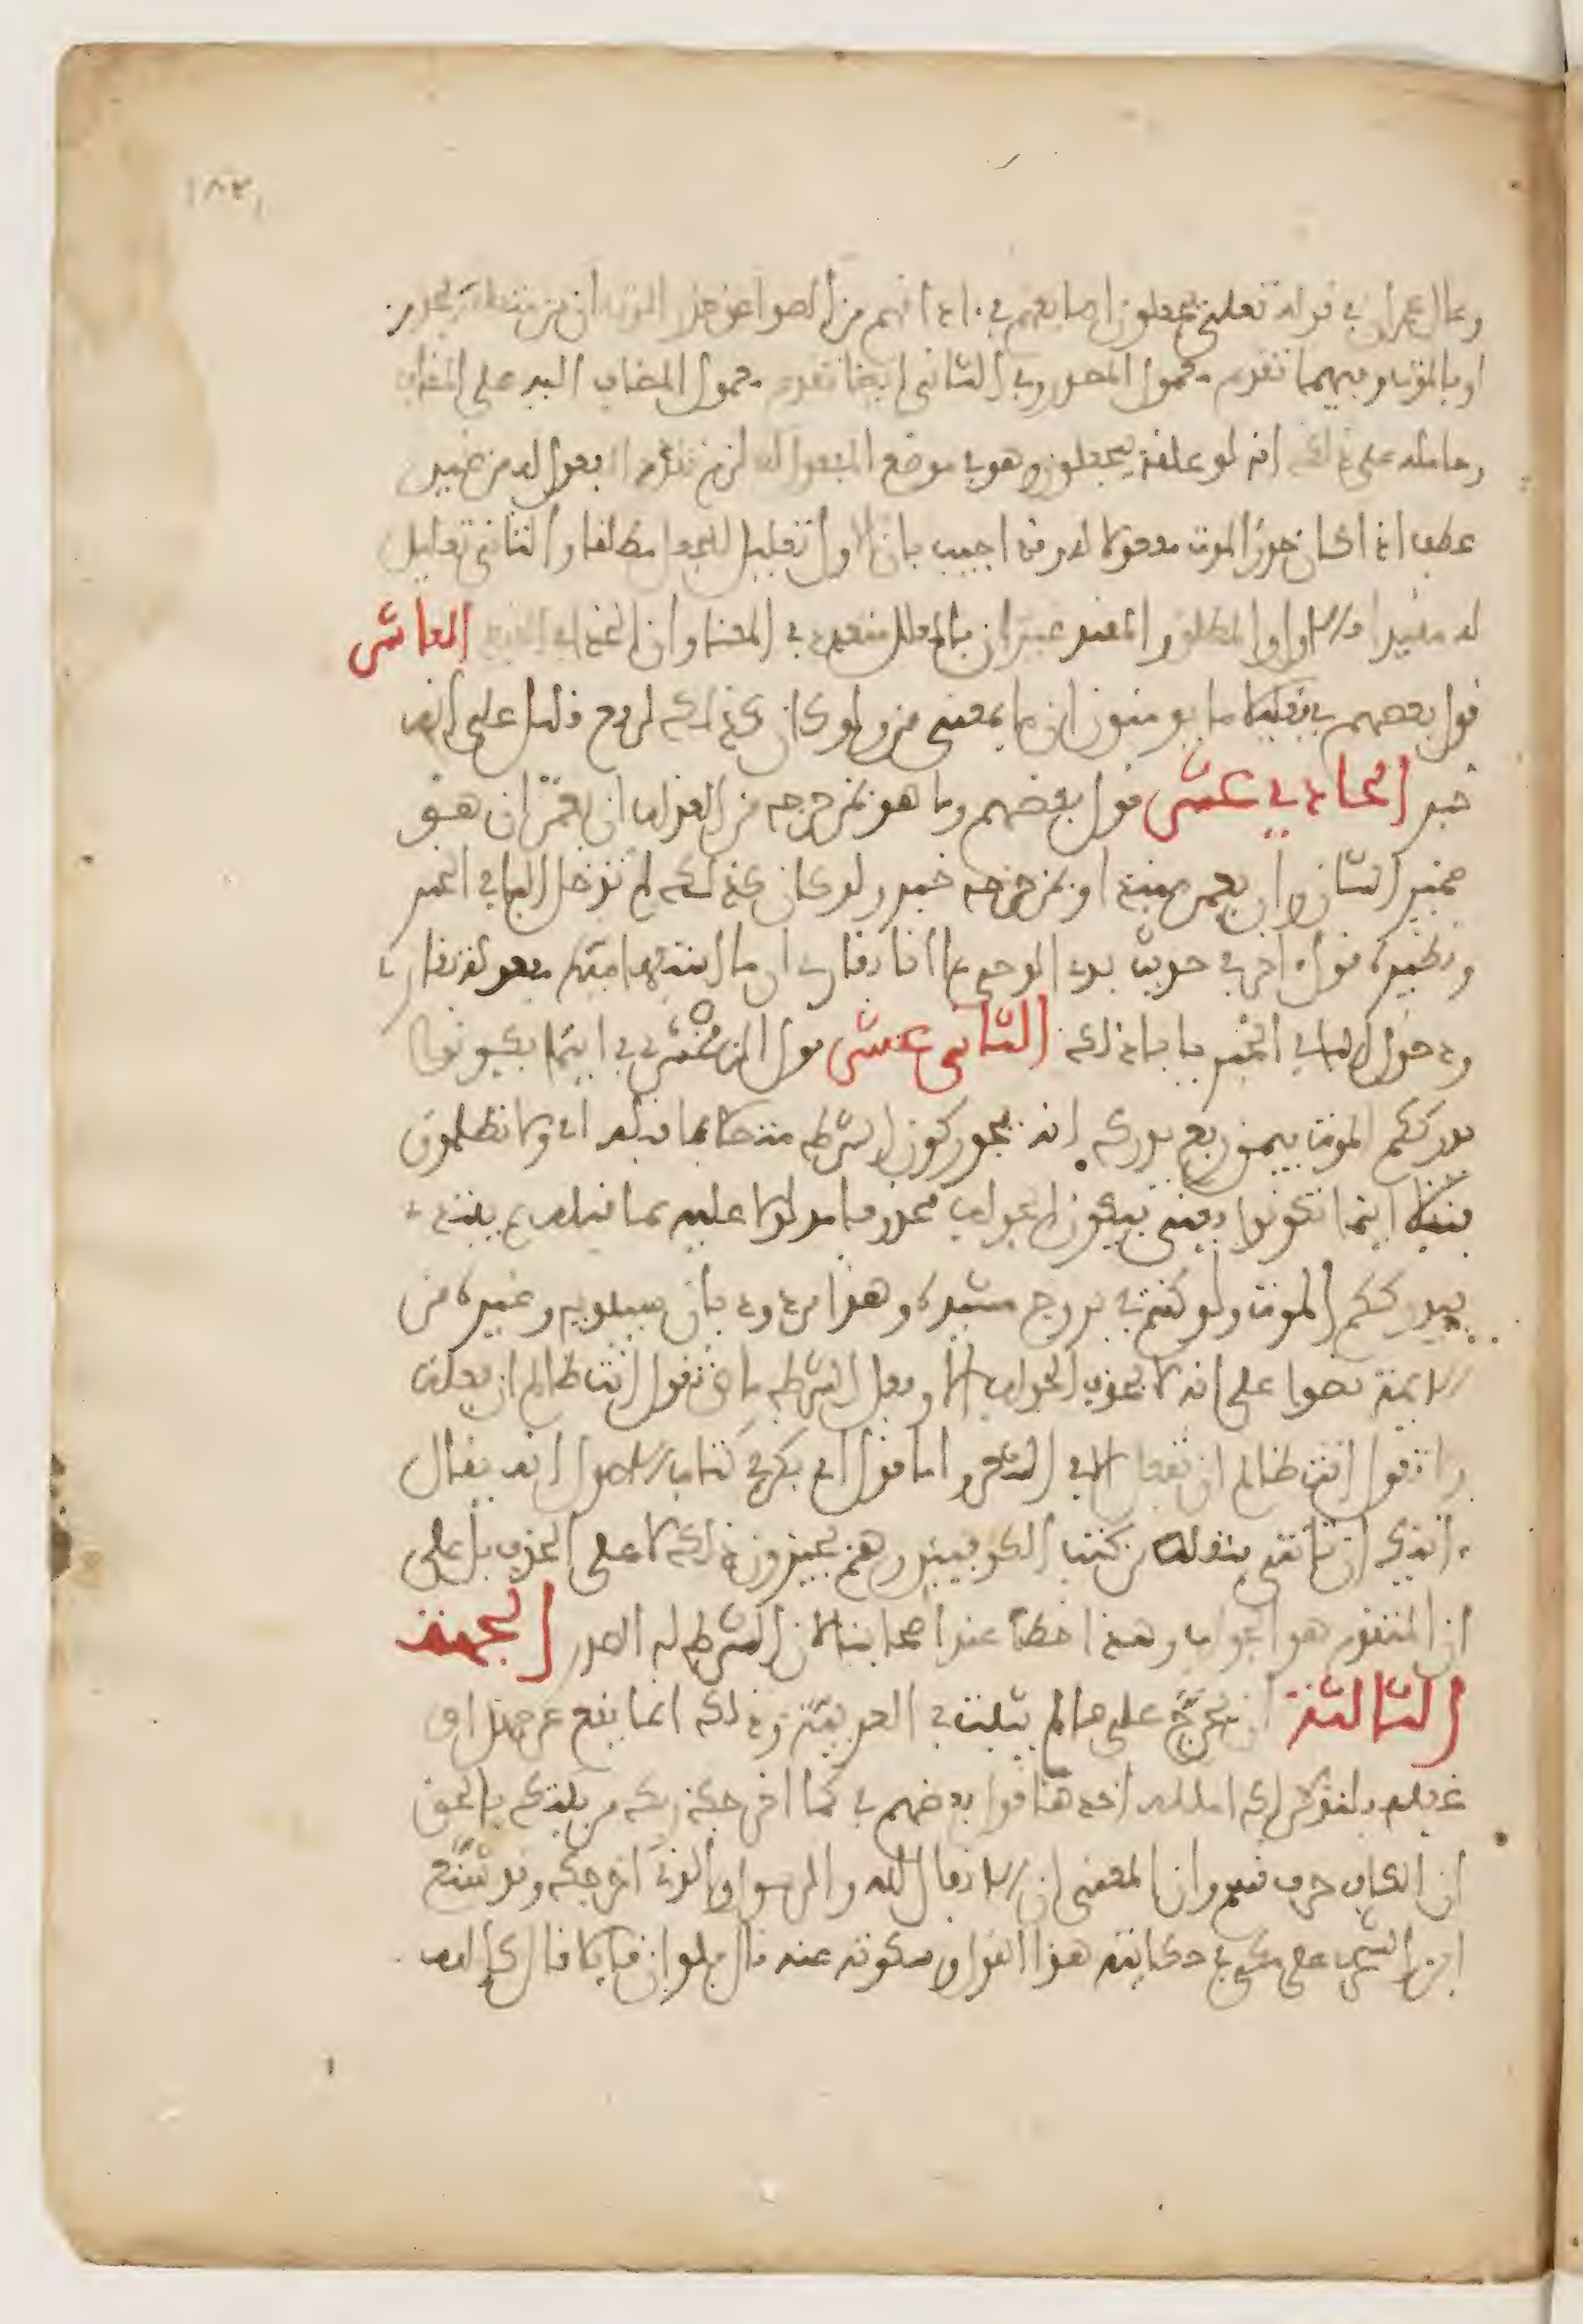 وقال عمران في قوله تعلى يجعلون اصابعهم في ءاذانهم من الصواعق حذر الموت ان من متعلقة بحذر
او بالموت وفيهما تقدم معمول المصدر وفي الثاني ايضا تقديم معمول المضاف اليه على المضاف
وحامله على ذلك انه لو علقه بيجعلون وهو في موضع المفعول له لزم تعدد المفعول له من غير
عطف اذ اكان حذر الموت مفعولا له وقد اجيب بان الاول تعليل للجعل مطلقا والثاني تعليل
له مقيدا والاول والمطلق والمقيد غيران فالمعلل متعدد في المعنا وان اتحد في اللفظ العاشر
قول بعضهم في فقليلا ما يومنون ان ما بمعنى من ولو كان كذلك لرفع قليل على انه
خبر الحادي عشر قول بعضهم وما هو بمزحزحه من العذاب ان يعمر ان هو
ضمير الشان وان يعمر مبتدا وبمزحزحه خبر ولو كان كذلك لم تدخل الباء في الخبر
ونظيره قول اخر في حديث بدء الوحي ما انا بقارئ ان ما استفهامية مفعولة لقارئ
ودخول الباء في الخبر يابا ذلك الثاني عشر قول الزمخشري في اينما تكونوا
يدرككم الموت فيمن رفع يدرك انه يجوز كون الشرط متصلا بما قبله اي ولا تظلمون
فتيلا اينما تكونوا يعني فيكون الجواب محذوفا مدلولا عليه بما قبله ثم يبتدئ
يدرككم الموت ولو كنتم في بروج مشيدة وهذا مردود بان سيبويه وغيره من
الايمة نصوا على انه لا يحذف الجواب الا وفعل الشرط ماض تقول انت ظالم ان فعلت
ولا تقول انت ظالم ان تفعل الا في الشعر واما قول ابي بكر في كتاب الاصول انه يقال
ءاتيك ان تاتني فنقله من كتب الكوفيين وهم يجيزون ذلك لا على الحذف بل على
ان المتقدم هو الجواب وهذا خطأ عند اصحابنا لان الشرط له الصدر الجهة
الثالثة ان يخرج على ما لم يثبت في العربية وذلك انما يقع عن جهل او
غفلة ولنذكر لك امثلة احدها قول بعضهم في كما اخرجك ربك من بيتك بالحق
ان الكاف حرف قسم وان المعنى ان الانفال لله والرسول والذي اخرجك وقد شنع
ابن الشجري على مكي في حكايته هذا القول وسكوته عنه قال ولو ان قايلا قال كالله